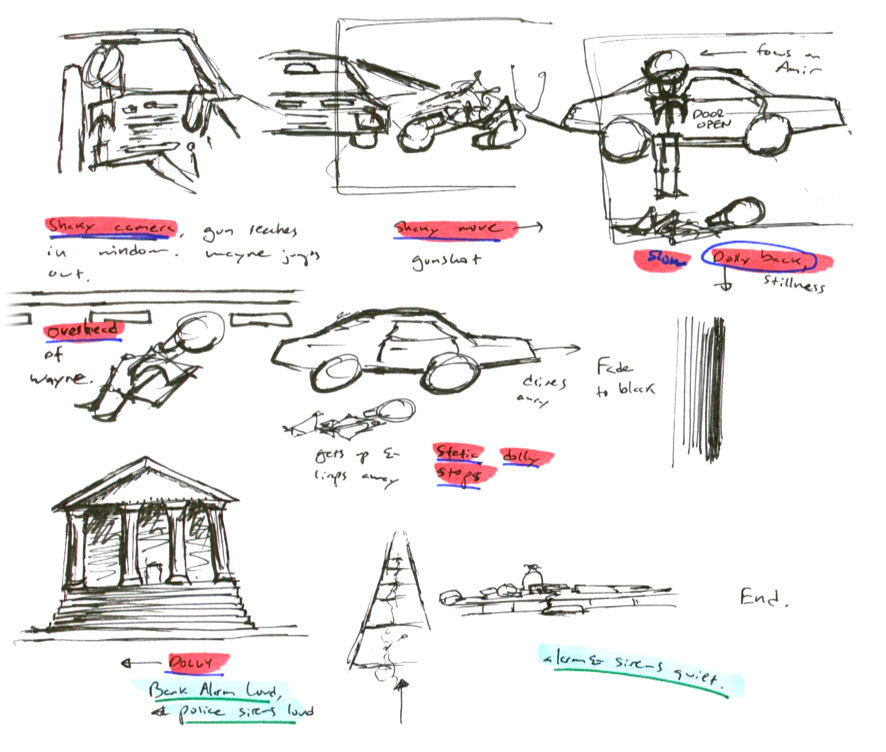 focus on
Amir
DOOR
OPEN
Shaky camera, gun reaches
in window. Wayne jumps
out.
Shaky move
gunshot
Slow
Dolly back,
stillness
overhead
of
Wayne.
drives
away
Fade
to black
gets up &
limps away
Static dolly
stops
End.
DOLLY
Bank Alarm Loud,
police sirens loud
alarm & sirens quiet.